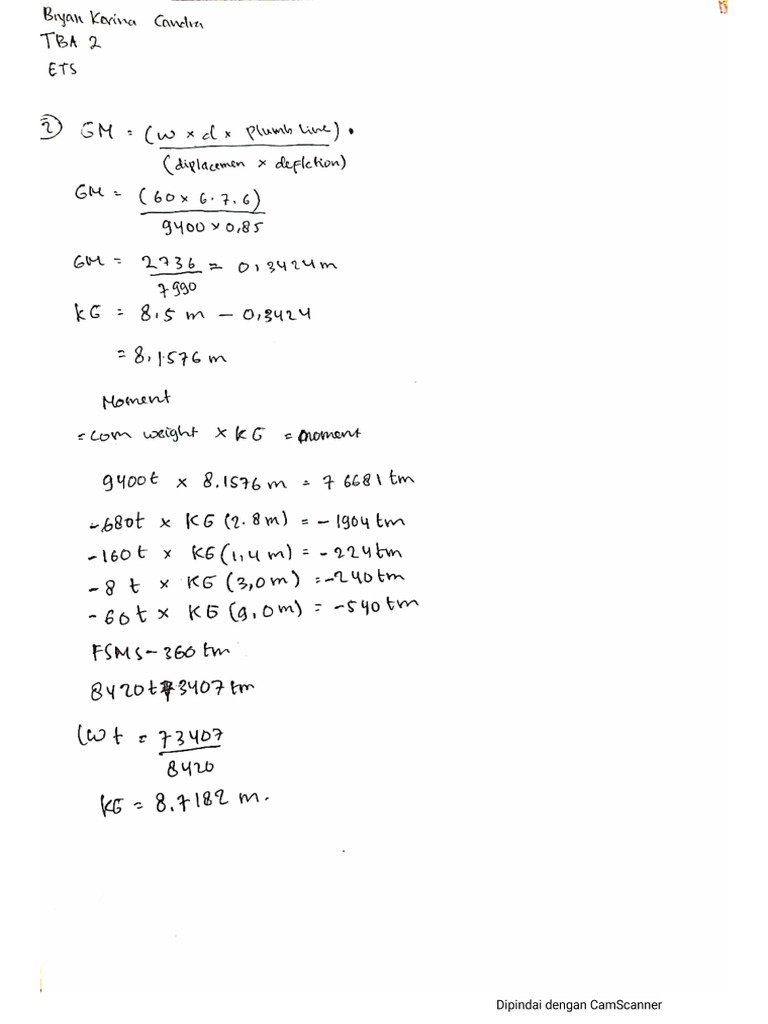 Bryan Korina Candra
TBA 2
ETS
2) GM = (w × d × Plumb line) .
(diplacemen × defletion)
GM = (60 × 6.7.6)
9400 × 0,85
GM = 2736 = 0,3424 m
7990
KG = 8.5 m – 0,3424
= 8,1576 m
Moment
= com weight × KG = moment
9400t × 8.1576 m = 76681 tm
-680t × KG (2.8 m) = -1904 tm
-160 t × KG (1,4 m) = -224 tm
-8 t × KG (3,0 m) = -240 tm
-60 t × KG (9,0 m) = -540 tm
FSMS – 360 tm
8420t 73407 tm
Lwt = 73407
8420
KG = 8.7182 m.
Dipindai dengan CamScanner